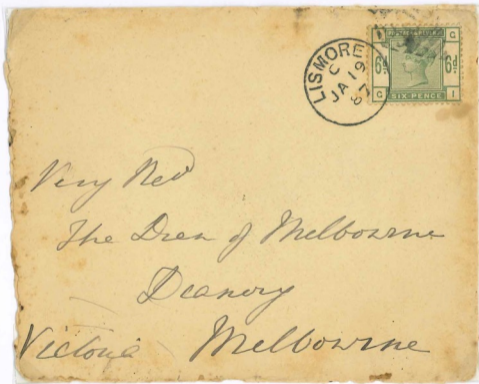 LISMORE
C
JA 19
87
POSTAGE & REVENUE
G
6d. 6d.
SIX-PENCE
G I
Very Revd
The Dean of Melbourne
Deanery
Victoria Melbourne